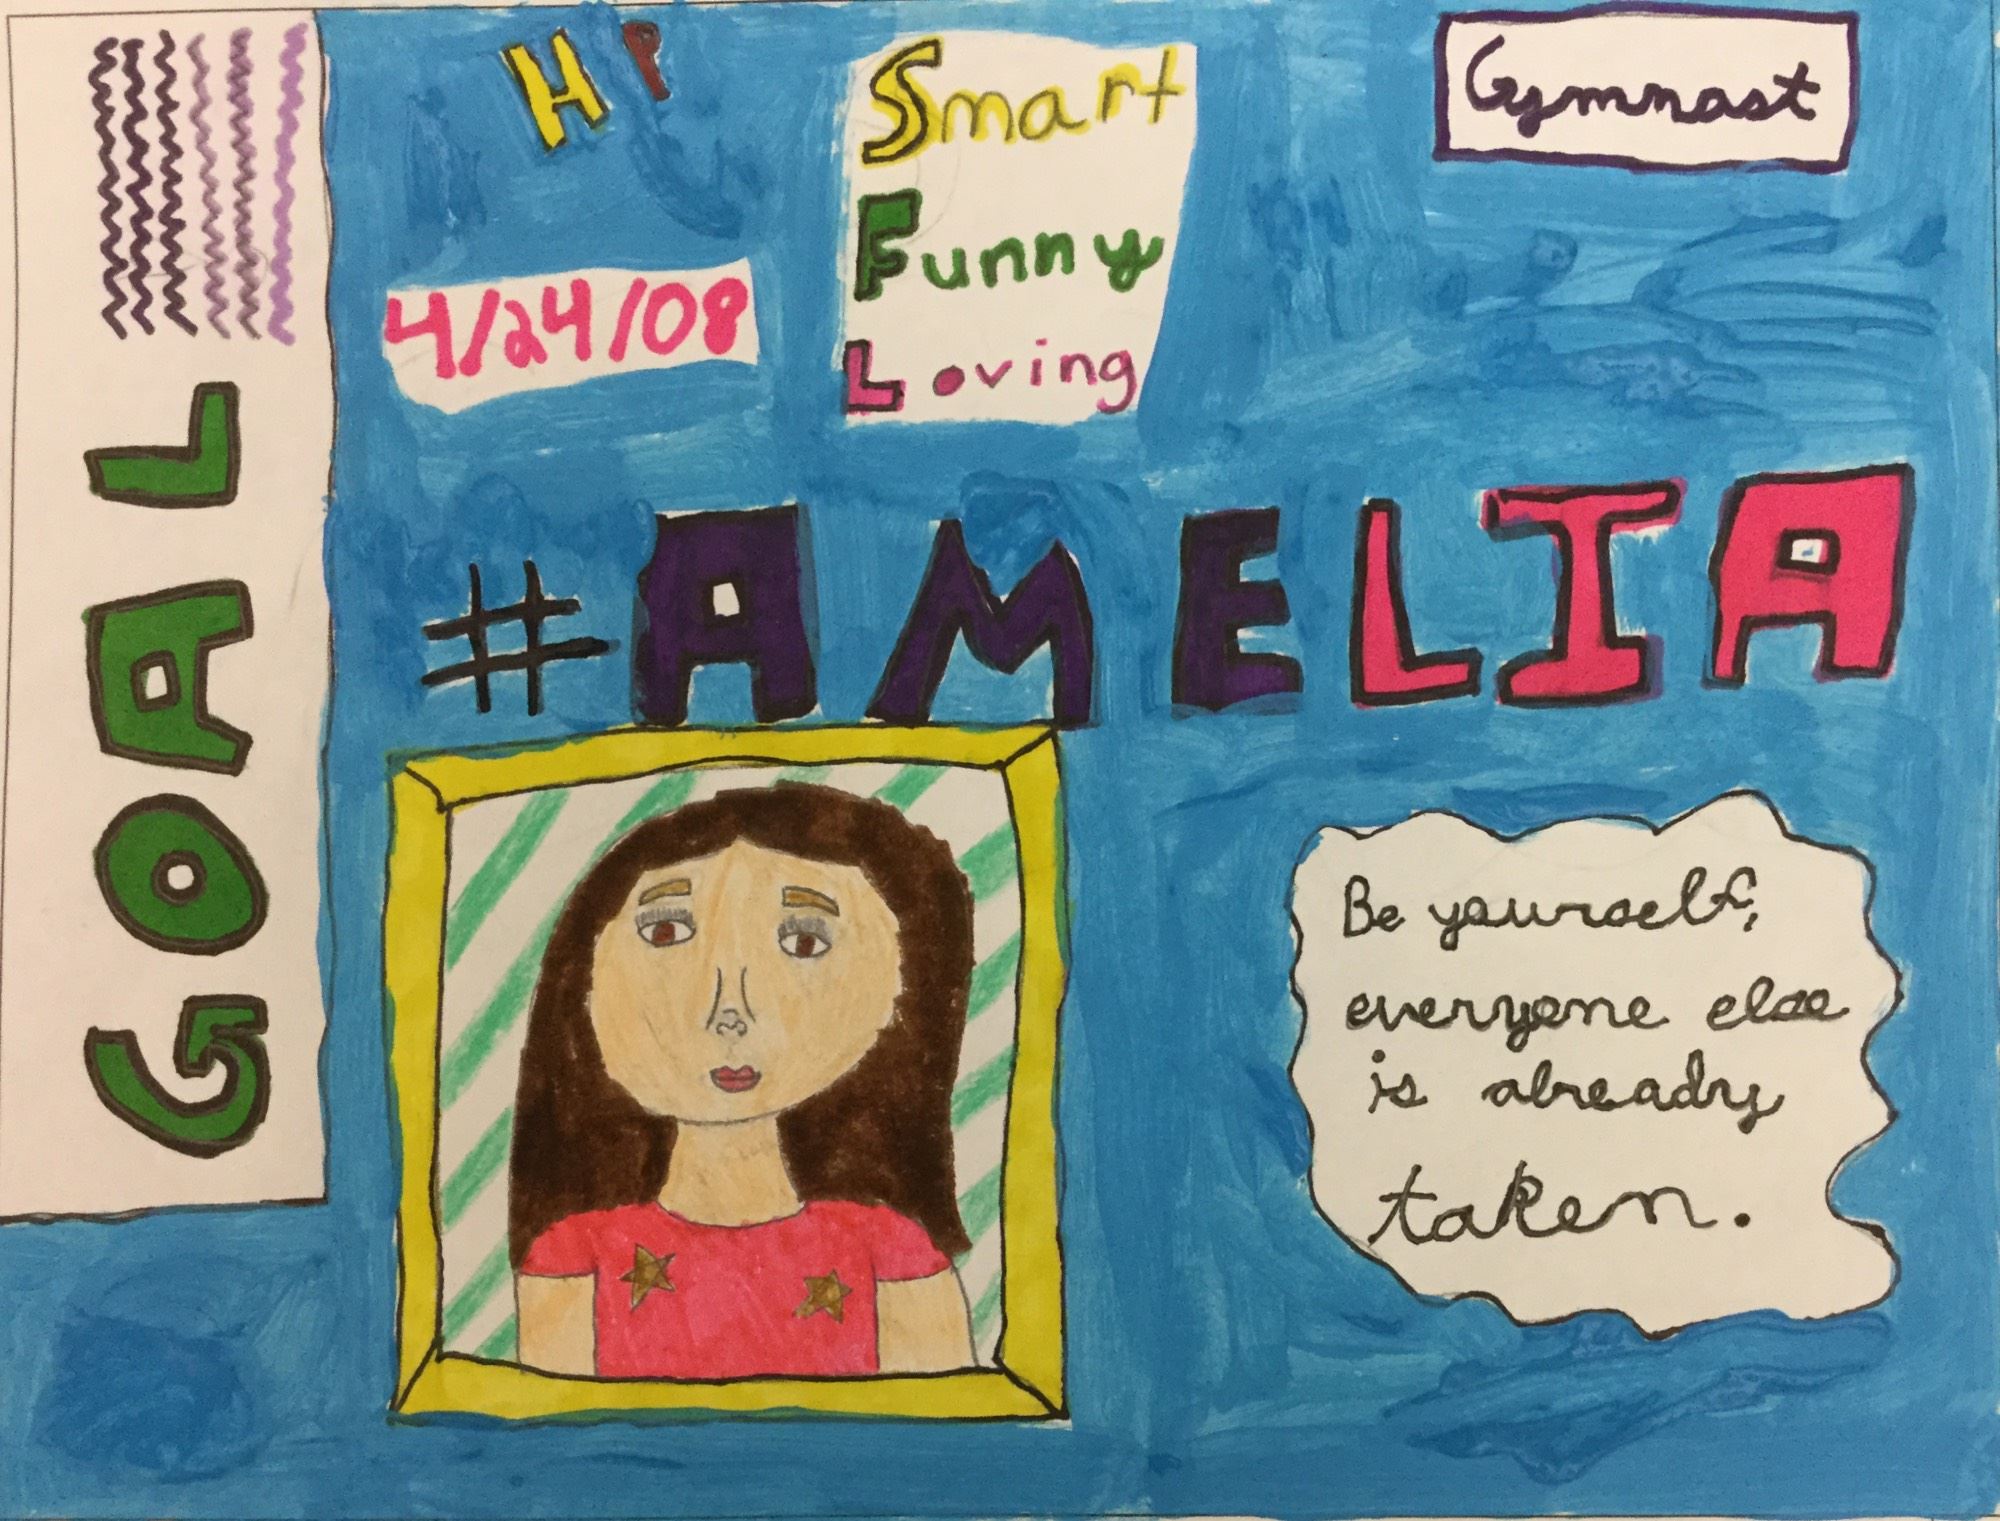 GOAL
HP
4/24/08
Smart
Funny
Loving
Gymnast
#AMELIA
Be yourself,
everyone else
is already
taken.